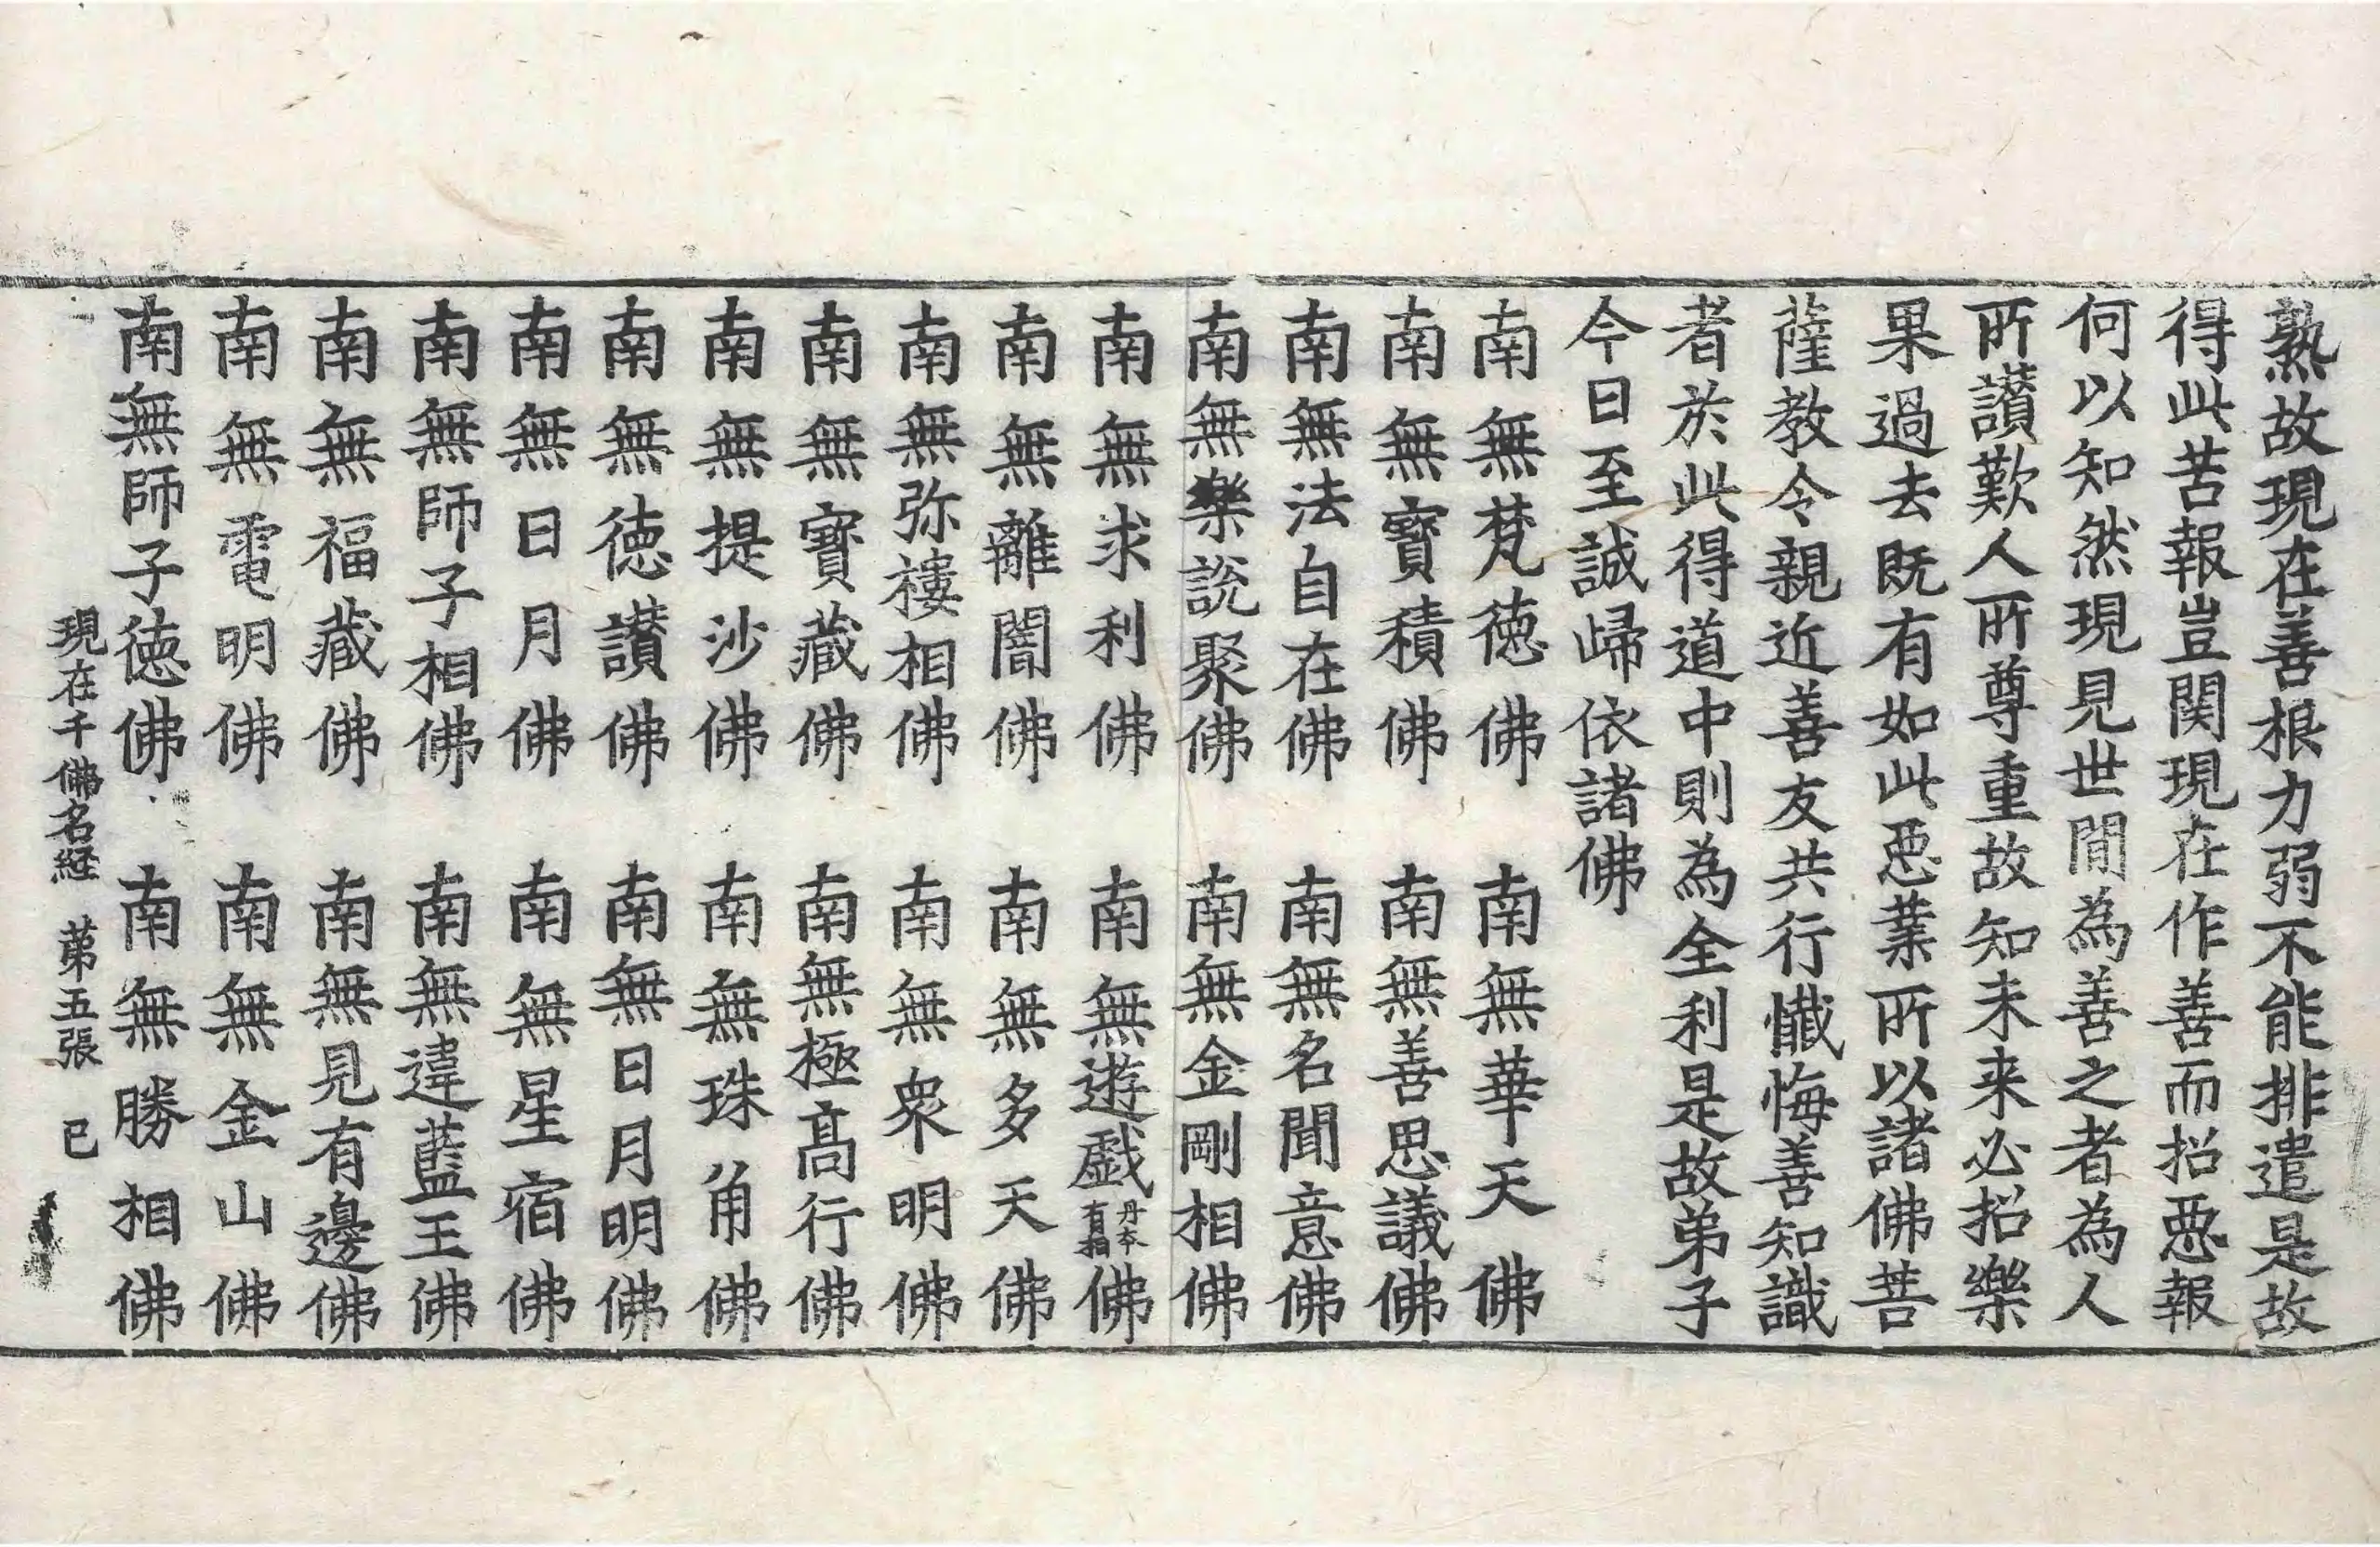 熟故現在善根力弱不能排遣是故
得此苦報豈関現在作善而招惡報
何以知然現見世間為善之者為人
所讃歎人所尊重故知未来必招樂
果過去既有如此惡業所以諸佛菩
薩教令親近善友共行懺悔善知識
者於此得道中則為全利是故弟子
今日至誠歸依諸佛
南無梵徳佛　南無華天佛
南無寶積佛　南無善思議佛
南無法自在佛　南無名聞意佛
南無樂說聚佛　南無金剛相佛
南無求利佛　南無遊戯丹本有相佛
南無離闇佛　南無多天佛
南無弥樓相佛　南無衆明佛
南無寶藏佛　南無極髙行佛
南無提沙佛　南無珠角佛
南無徳讃佛　南無日月明佛
南無日月佛　南無星宿佛
南無師子相佛　南無違藍王佛
南無福藏佛　南無見有邊佛
南無電明佛　南無金山佛
南無師子徳佛　南無勝相佛
現在千佛名経　第五張　已